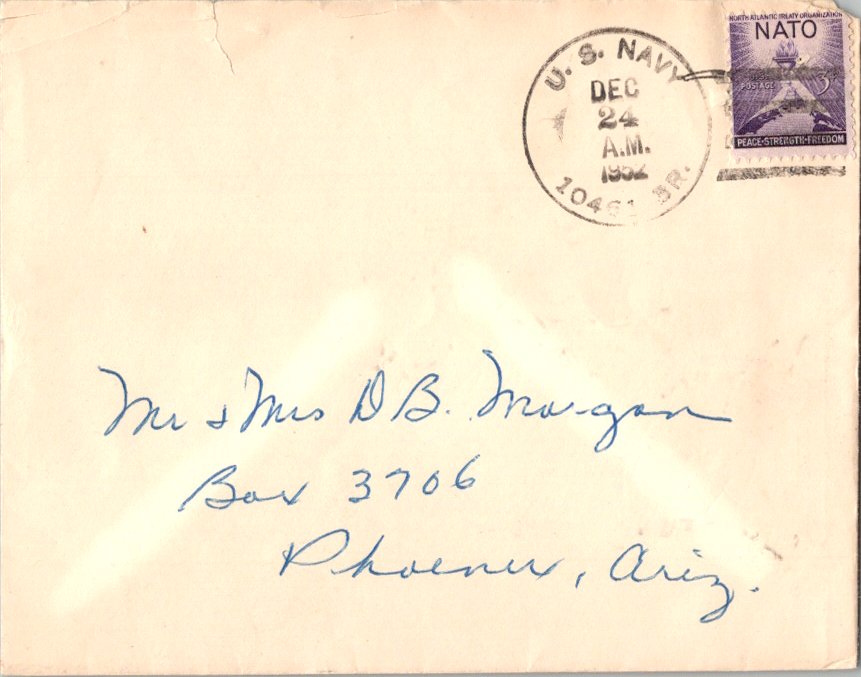 NORTH ATLANTIC TREATY ORGANIZATION
NATO
POSTAGE 3¢
PEACE-STRENGTH-FREEDOM
U. S. NAVY
DEC
24
A.M.
1952
10461 BR.
Mr & Mrs D B. Morgan
Box 3706
Phoenix, Ariz.